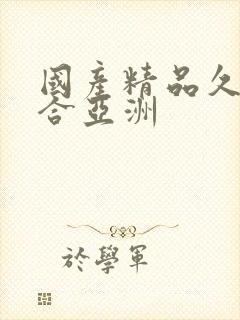 國產精品久
合亞洲
於學軍